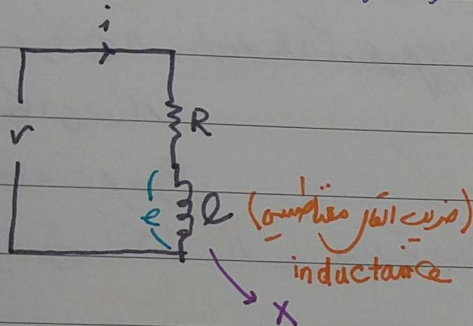 i
v
R
e
l (ضریب القای مغناطیسی)
inductance
X